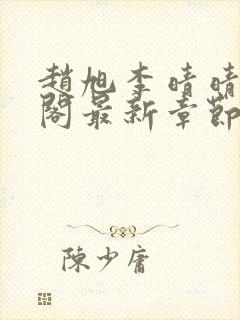 趙旭李晴晴
閣最新章節
陳少庸